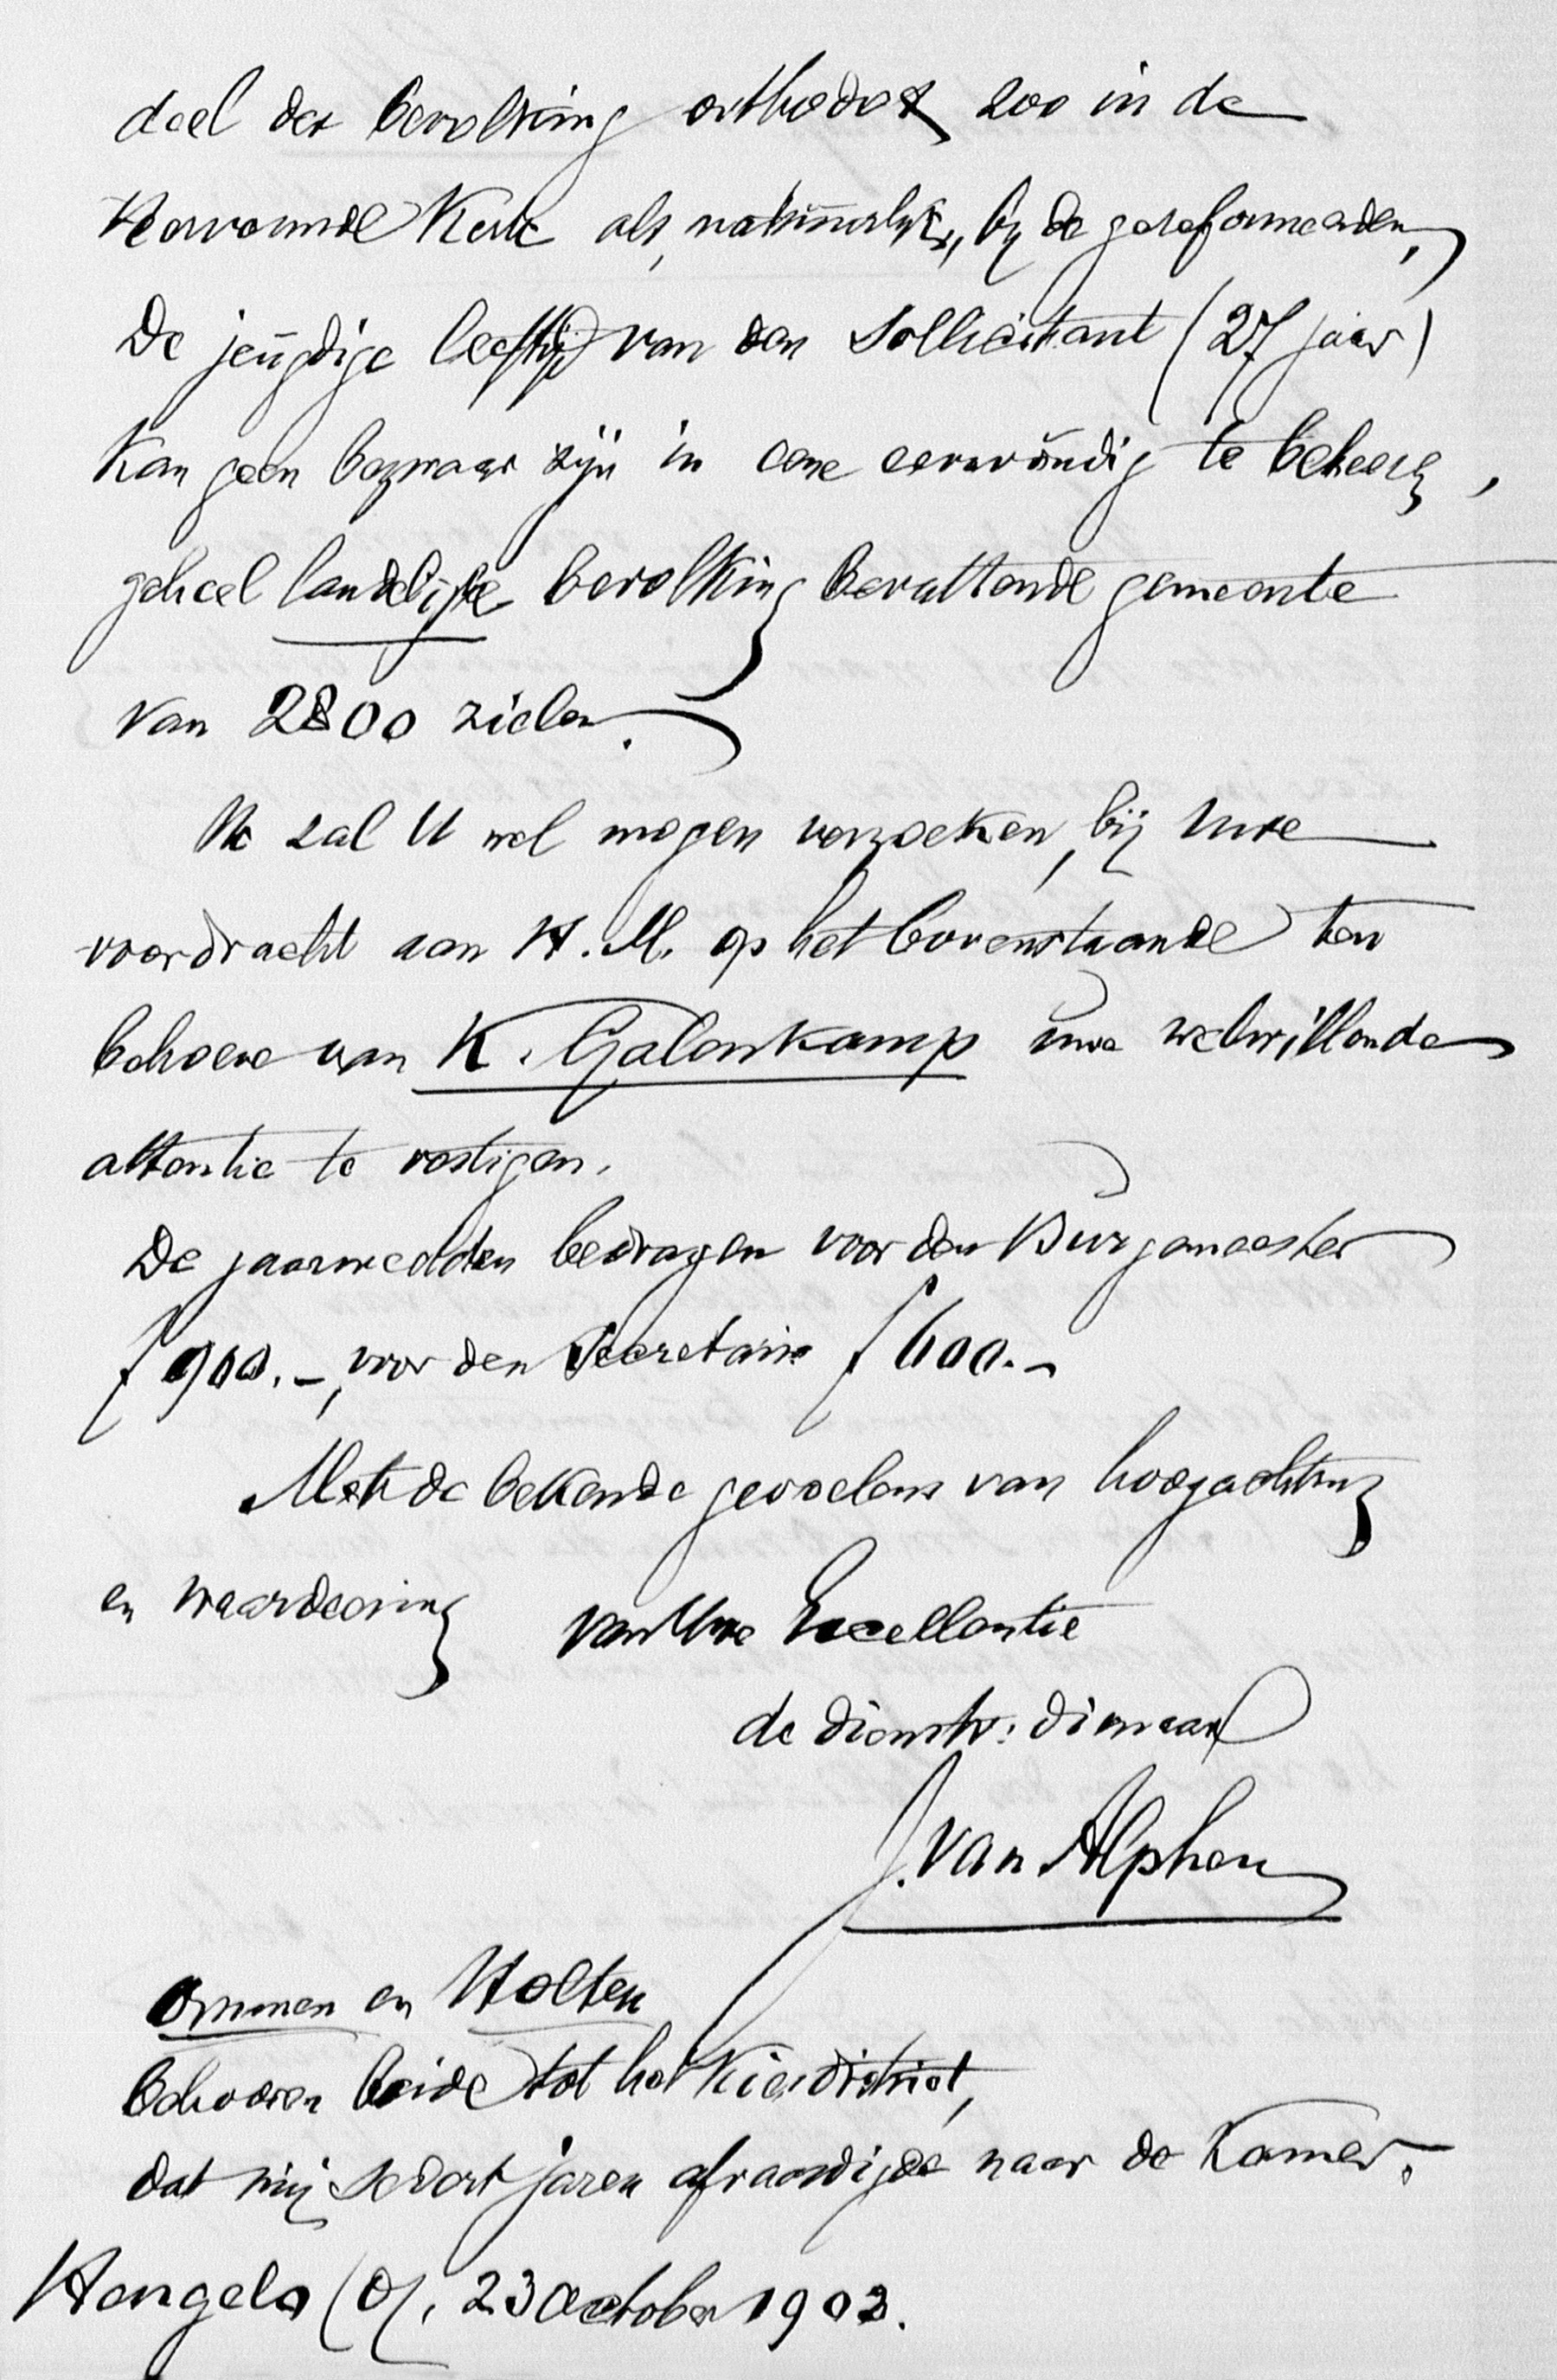 deel der bevolking orthodox zoo in de
Hervormde Kerk als, natuurlijk, bij de gereformeerden,
De jeugdige leeftijd van den Sollicitant (27 jaar)
Kan geen bezwaar zijn in eene eenvoudig te beheeren,
geheel landelijke bevolking bevattende gemeente
van 2800 zielen.
Ik zal U wel mogen verzoeken, bij Uwe
voordracht aan H. M. op het bovenstaande ten
behoeve van K. Galenkamp uwe welwillende
attentie te vestigen.
De jaarwedden bedragen voor den Burgemeester
f 900.-, voor den Secretaris f 600.-
Met de bekende gevoelens van hoogachting
en waardeering van Uwe Excellentie
de dienstw: dienaar
J. van Alphen
Ommen en Holten
behooren beide tot het Kiesdistrict,
dat mij sedert jaren afvaardigde naar de Kamer.
Hengelo (O), 23 October 1903.